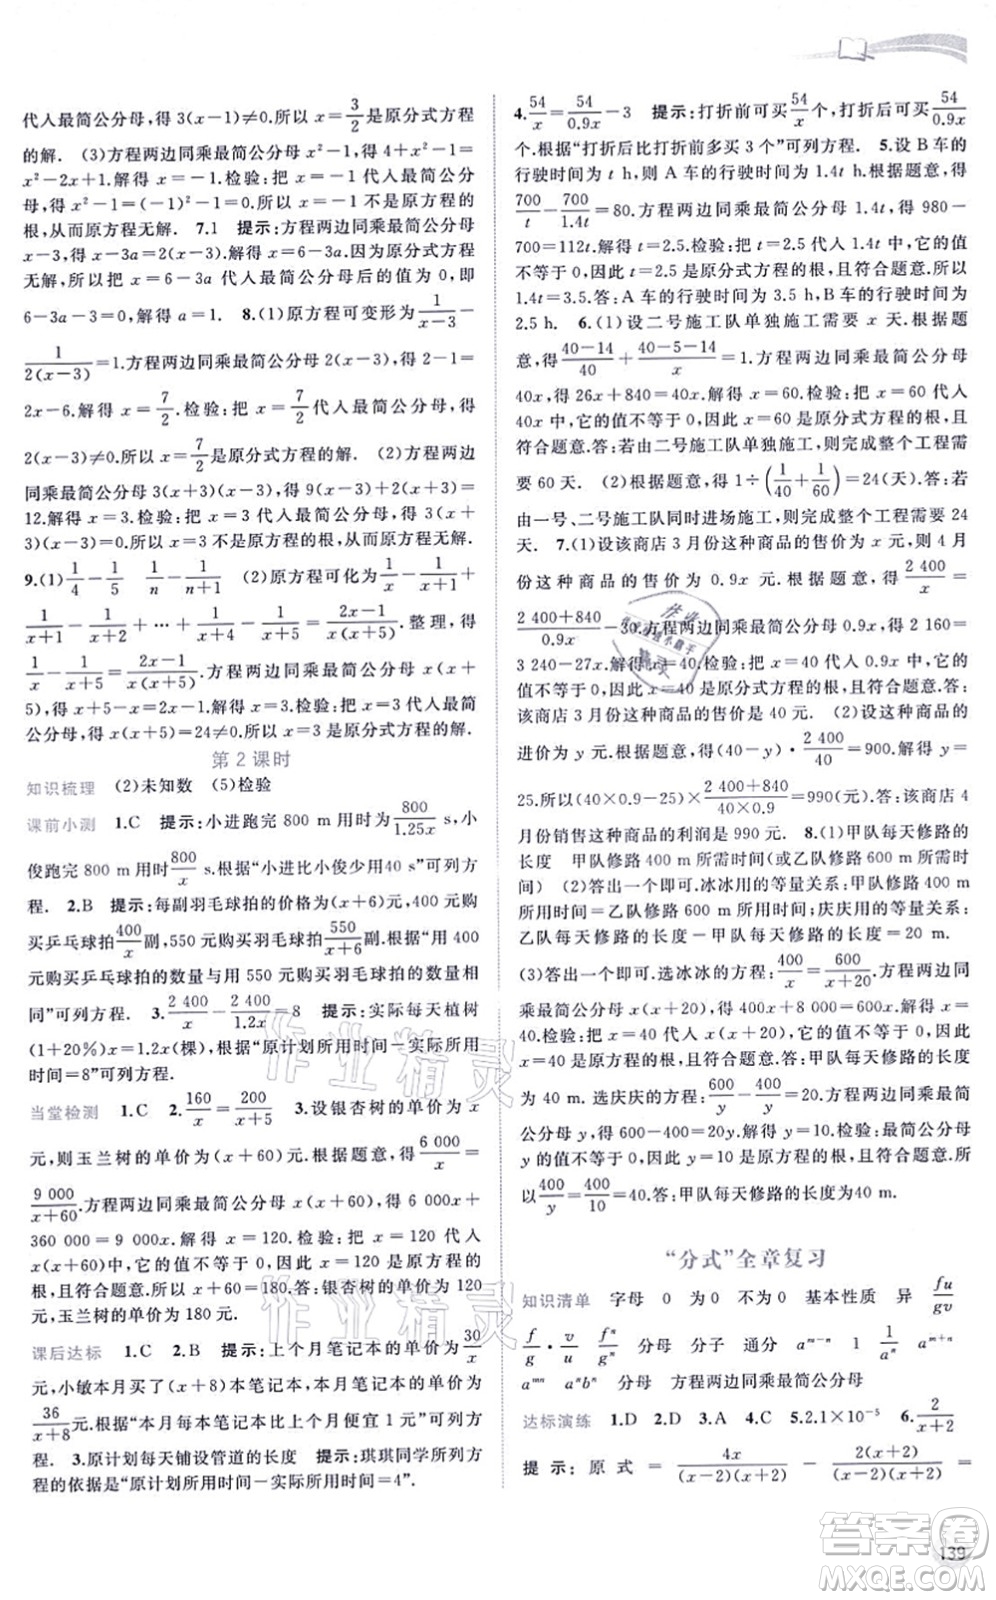 代入最简公分母,得 3(x-1)≠0.所以 x=3/2是原分式方程
的解. (3)方程两边同乘最简公分母 x²-1,得 4+x²-1=
x²-2x+1.解得 x=-1.检验:把 x=-1 代入最简公分
母,得 x²-1=(-1)²-1=0.所以 x=-1 不是原方程的
根,从而原方程无解. 7.1 提示:方程两边同乘最简公分母
x-3,得 x-3a=2(x-3).解得 x=6-3a.因为原分式方程
无解,所以把 x=6-3a 代入最简公分母后的值为 0,即
6-3a-3=0.解得 a=1. 8.(1)原方程可变形为1/(x-3)-
1/2(x-3)=1.方程两边同乘最简公分母 2(x-3),得 2-1=
2x-6.解得 x=7/2.检验:把 x=7/2代入最简公分母,得
2(x-3)≠0.所以 x=7/2是原分式方程的解. (2)方程两边
同乘最简公分母 3(x+3)(x-3),得 9(x-3)+2(x+3)=
12.解得 x=3.检验:把 x=3 代入最简公分母,得 3(x+
3)(x-3)=0.所以 x=3 不是原方程的根,从而原方程无解.
9.(1)1/4-1/5 1/n-1/(n+1) (2)原方程可化为1/x-1/(x+1)+
1/(x+1)-1/(x+2)+…+1/(x+4)-1/(x+5)=(2x-1)/x(x+5).整理,得
1/x-1/(x+5)=(2x-1)/x(x+5).方程两边同乘最简公分母 x(x+
5),得 x+5-x=2x-1.解得 x=3.检验:把 x=3 代入最简
公分母,得 x(x+5)=24≠0.所以 x=3 是原分式方程的解.
第 2 课时
知识梳理 (2)未知数 (5)检验
课前小测 1.C 提示:小进跑完 800 m 用时800/1.25x s,小
俊跑完 800 m 用时800/x s.根据“小进比小俊少用40 s”可列方
程. 2.B 提示:每副羽毛球拍的价格为(x+6)元,400 元
购买乒乓球拍400/x副,550 元购买羽毛球拍550/(x+6)副.根据“用 400
元购买乒乓球拍的数量与用 550 元购买羽毛球拍的数量相
同”可列方程. 3.2 400/x-2 400/1.2x=8 提示:实际每天植树
(1+20%)x=1.2x(棵),根据“原计划所用时间-实际所用
时间=8”可列方程.
当堂检测 1.C 2.160/x=200/(x+5) 3.设银杏树的单价为 x
元,则玉兰树的单价为(x+60)元.根据题意,得6 000/x=
9 000/(x+60).方程两边同乘最简公分母 x(x+60),得 6 000x+
360 000=9 000x.解得 x=120.检验:把 x=120 代入
x(x+60)中,它的值不等于 0.因此 x=120 是原方程的根,
且符合题意.所以 x+60=180.答:银杏树的单价为 120
元,玉兰树的单价为 180 元.
课后达标 1.C 2.B 提示:上个月笔记本的单价为30/x
元,小敏本月买了(x+8)本笔记本,则本月笔记本的单价为
36/(x+8)元.根据“本月每本笔记本比上个月便宜 1 元”可列方
程. 3.原计划每天铺设管道的长度 提示:琪琪同学所列方
程的依据是“原计划所用时间-实际所用时间=4”.
4.54/x=54/0.9x-3 提示:打折前可买54/x个,打折后可买54/0.9x
个.根据“打折后比打折前多买 3 个”可列方程. 5.设 B 车的
行驶时间为 t h,则 A 车的行驶时间为 1.4t h.根据题意,得
700/t-700/1.4t=80.方程两边同乘最简公分母 1.4t,得 980-
700=112t.解得 t=2.5.检验:把 t=2.5 代入 1.4t 中,它的值
不等于 0.因此 t=2.5 是原分式方程的根,且符合题意.所以
1.4t=3.5.答:A 车的行驶时间为 3.5 h,B 车的行驶时间为
2.5 h. 6.(1)设二号施工队单独施工需要 x 天.根据题
意,得(40-14)/40+(40-5-14)/x=1.方程两边同乘最简公分母
40x,得 26x+840=40x.解得 x=60.检验:把 x=60 代入
40x 中,它的值不等于 0.因此 x=60 是原分式方程的根,且
符合题意.答:若由二号施工队单独施工,完成整个工程需
要 60 天. (2)根据题意,得 1÷(1/40+1/60)=24(天).答:若
由一号、二号施工队同时进场施工,则完成整个工程需要 24
天. 7.(1)设该商店 3 月份这种商品的售价为 x 元,则 4 月
份这种商品的售价为 0.9x 元.根据题意,得2 400/x=
(2 400+840)/0.9x-30.方程两边同乘最简公分母0.9x,得 2 160=
3 240-27x.解得 x=40.检验:把 x=40 代入 0.9x 中,它的
值不等于 0.因此 x=40 是原分式方程的根,且符合题意.答:
该商店 3 月份这种商品的售价是 40 元. (2)设该商品的
进价为 y 元.根据题意,得(40-y)·2 400/40=900.解得 y=
25.所以(40×0.9-25)×(2 400+840)/(40×0.9)=990(元).答:该商店 4
月份销售这种商品的利润是 990 元. 8.(1)甲队每天修路的
长度 甲队修路 400 m 所需时间(或乙队修路 600 m 所需时
间) (2)答出一个即可.冰冰用的等量关系:甲队修路 400 m
所用时间=乙队修路 600 m 所用时间;庆庆用的等量关系:
乙队每天修路的长度-甲队每天修路的长度=20 m.
(3)答出一个即可.选冰冰的方程:400/x=600/(x+20).方程两边同
乘最简公分母 x(x+20),得 400x+8 000=600x.解得 x=
40.检验:把 x=40 代入 x(x+20)中,它的值不等于 0.因此
x=40 是原方程的根,且符合题意.答:甲队每天修路的长度
为 40 m. 选庆庆的方程:600/y-400/y=20.方程两边同乘最简
公分母 y,得 600-400=20y.解得 y=10.检验:最简公分母
y 的值不等于 0.因此 y=10 是原方程的根,且符合题意.所
以400/y=400/10=40.答:甲队每天修路的长度为40 m.
“分式”全章复习
知识清单 字母 0 为 0 不为 0 基本性质 异 fu/gv
f/g·v/u fⁿ/gⁿ 分母 分子 通分 aᵐ⁻ⁿ 1 1/aⁿ aᵐ⁺ⁿ
aᵐⁿ aⁿbⁿ 分母 方程两边同乘最简公分母
达标演练 1.D 2.D 3.A 4.C 5.2.1×10⁻⁵ 6.2/(x+2)
提示:原式=4x/(x-2)(x+2)-2(x+2)/(x-2)(x+2)=
139
作业精灵
作业精灵
答案圈
MXQE.COM